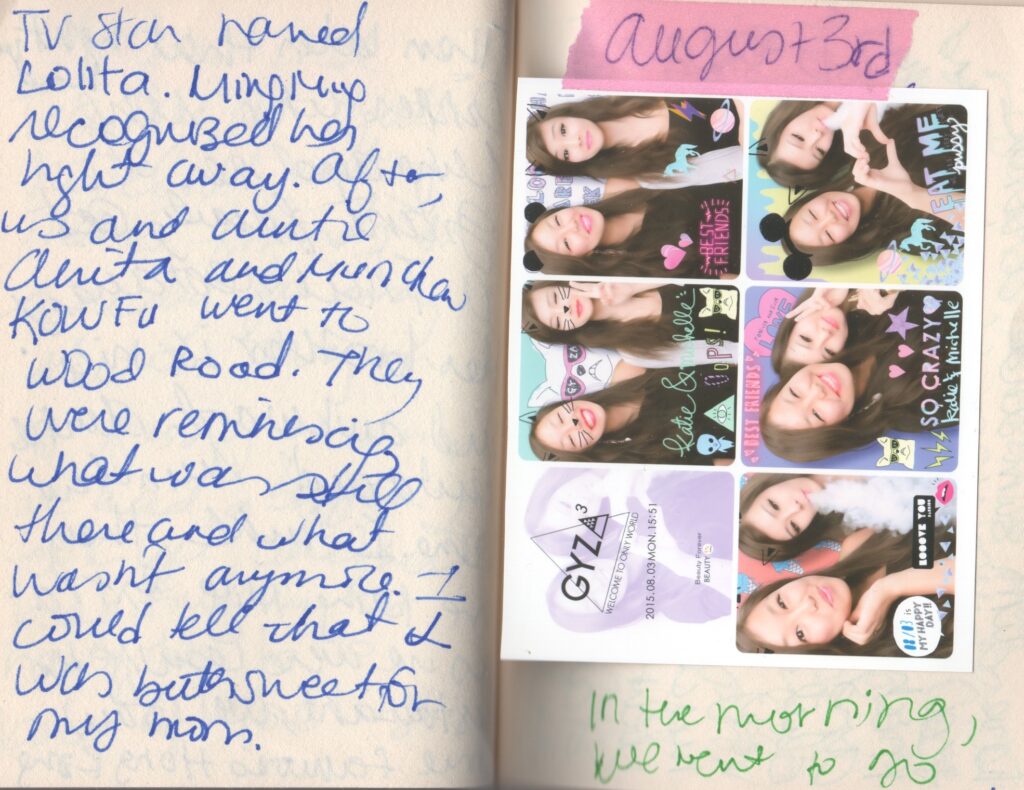 TV Star named
Lolita. Mingming
recognized her
right away. After,
us and auntie
Anita and
KOWFU went to
Wood Road. They
were reminescing
what was still
there and what
wasn't anymore. I
could tell that I
was bittersweet for
my mom.
august 3rd
BEST
FRIENDS
EAT ME
pussy
Katie & Michelle
OOPS!
BEST FRIENDS
LOVE
SO CRAZY
Katie & Michelle
GYZA3
WELCOME TO ONLY WORLD
2015.08.03 MON. 15:51
Beauty Forever
BEAUTY
LOOOVE YOU
08/03 is
MY HAPPY
DAY!!
In the morning,
we went to go